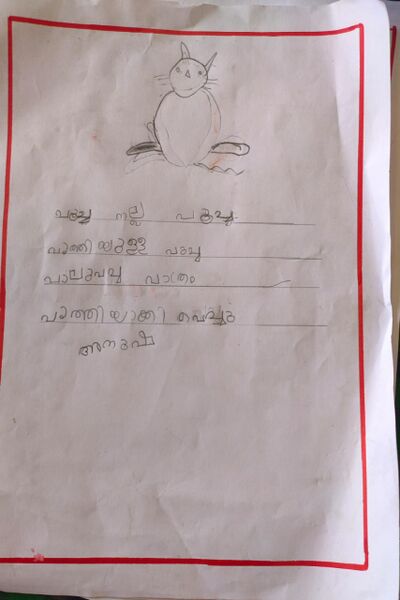 പൂച്ച നല്ല പൂച്ച
പുത്തിയുള്ള പൂച്ച
പാലുപച്ച പാത്രം
പുത്തിയാക്കി പെച്ചു
അനുഷ